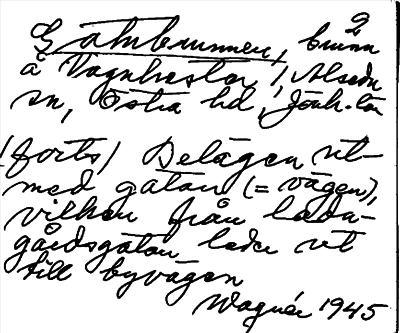 2
Gatubrunnen, brunn
å Vagnhester, Alseda
sn, Östra hd, Jönk. län
(forts) Belägen ut-
med gatan (= vägen),
vilken från lada-
gårdsgatan leder ut
till byvägen
Wagnér 1945